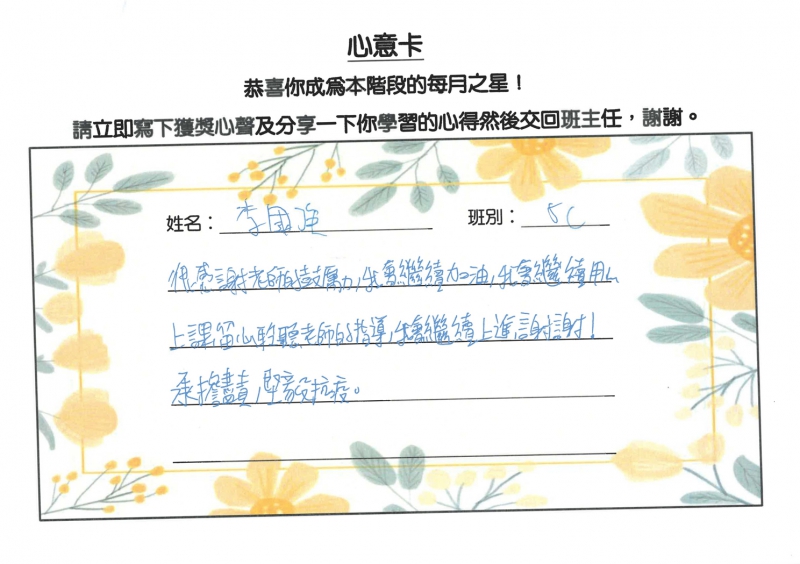 心意卡
恭喜你成為本階段的每月之星！
請立即寫下獲獎心聲及分享一下你學習的心得然後交回班主任，謝謝。
姓名： 李國強 班別： 5C
很感謝老師的鼓勵,我會繼續加油,我會繼續用心
上課留心聆聽老師的指導,我會繼續上進謝謝!
承擔盡責,堅毅抗疫。